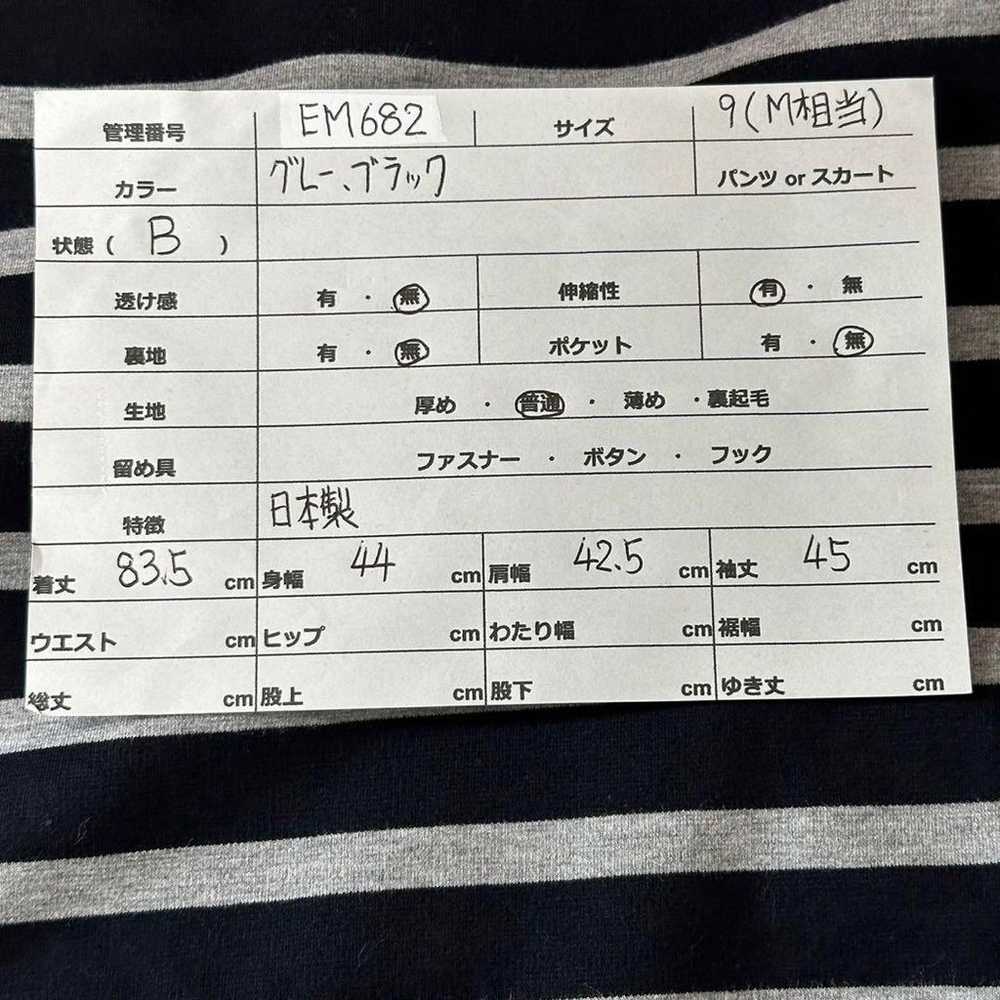 管理番号 EM682 サイズ 9(M相当)
カラー グレー、ブラック パンツ or スカート
状態 ( B )
透け感 有 ・ 無 伸縮性 有 ・ 無
裏地 有 ・ 無 ポケット 有 ・ 無
生地 厚め ・ 普通 ・ 薄め ・ 裏起毛
留め具 ファスナー ・ ボタン ・ フック
特徴 日本製
着丈 83.5 cm 身幅 44 cm 肩幅 42.5 cm 袖丈 45 cm
ウエスト cm ヒップ cm わたり幅 cm 裾幅 cm
総丈 cm 股上 cm 股下 cm ゆき丈 cm